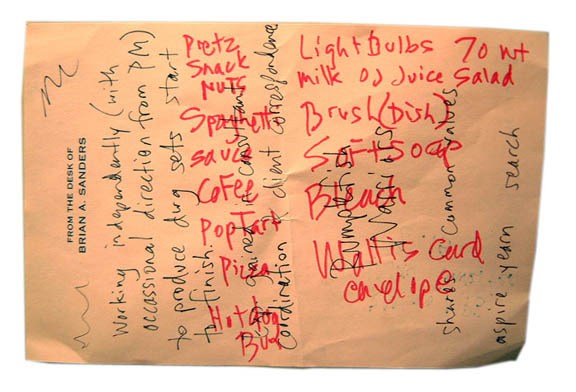 Pretz
Snack
Nuts
Spaghetti
sauce
Cofee
PopTart
Pizza
Hotdog
Bun
LightBulbs 70 wt
milk OJ Juice Salad
Brush(Dish)
Soft Soap
Bleach
Wallis Card
envelope
FROM THE DESK OF
BRIAN A. SANDERS
Working independently (with
occassional direction from PM)
to produce dwg sets start
to finish.
gained in consultant
coordination & client correspondence
shares common values
aspire yearn search